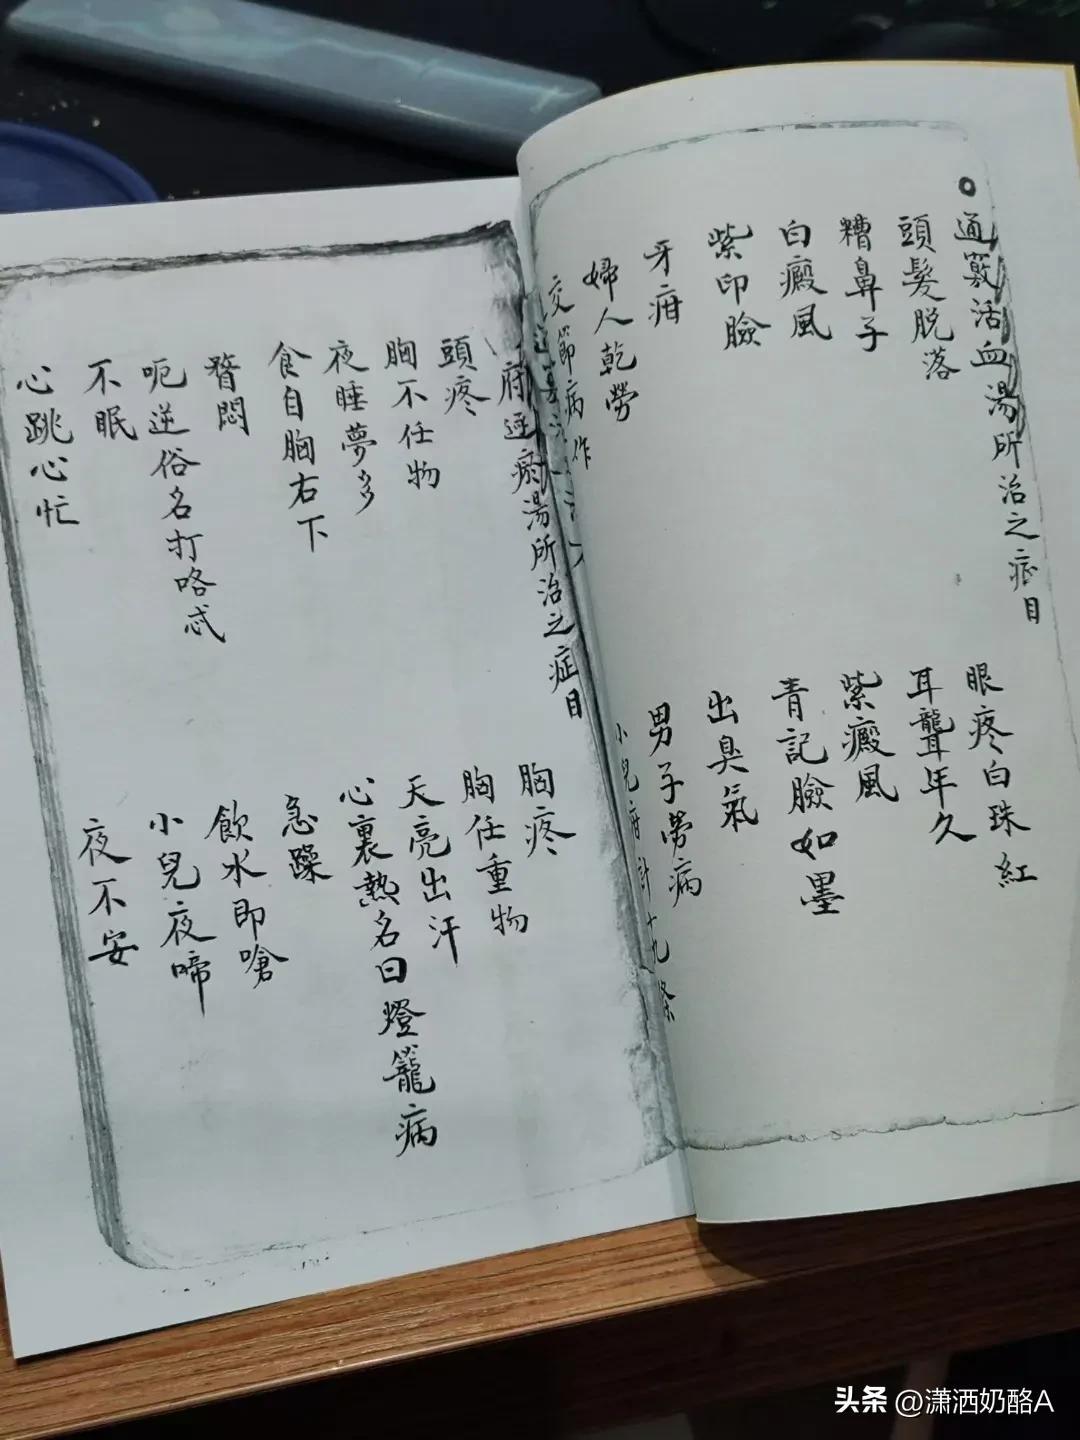 通竅活血湯所治之症目
頭髮脫落
眼疼白珠紅
糟鼻子
耳聾年久
白癜風
紫癜風
紫印臉
青記臉如墨
牙疳
出臭氣
婦人乾勞
男子勞病
交節病作
小兒疳計十九條
府逐瘀湯所治之症目
頭疼
胸疼
胸不任物
胸任重物
夜睡夢多
天亮出汗
食自胸右下
心裏熱名曰燈籠病
瞀悶
急躁
呃逆俗名打咯忒
飲水即嗆
不眠
小兒夜啼
心跳心忙
夜不安
头条 @潇洒奶酪A